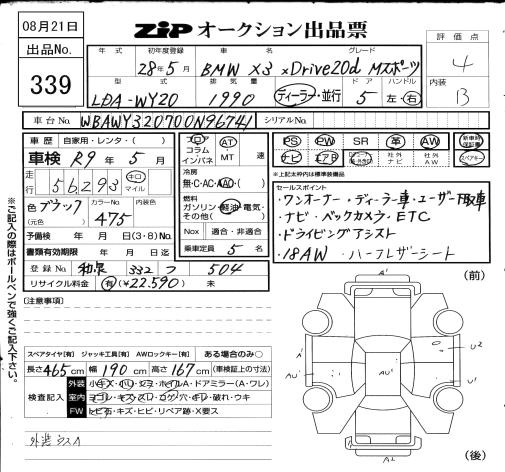 08月21日
ZIP オークション出品票
出品No.
339
年式 初年度登録 車名 グレード
28年5月 BMW X3 xDrive20d Mスポーツ
型式 排気量 ドア ハンドル
LDA-WY20 1990 ディーラー・並行 5 左・右
評価点
4
内装
B
車台No. WBAWY320700N96741 シリアルNo.
車歴 自家用・レンタ・( )
車検 R9年5月
走行 56,293 キロ マイル
色 ブラック カラーNo. 475
(元色)
予備検 年 月 日(3・8)No.
書類有効期限 年 月 日迄
登録No. 和泉 332 つ 504
リサイクル料金 有(¥22,590) 未
フロア コラム インパネ AT MT 速
冷房
無・C・AC・AAC・( )
燃料
ガソリン・軽油・電気・
その他( )
Nox 適合・非適合
乗車定員 5名
PS PW SR 革 AW 新車時保証書
ナビ エアB 社外ナビ 社外AW スペアキー
※上記太枠内は標準装備品
セールスポイント
・ワンオーナー・ディーラー車・ユーザー下取車
・ナビ・バックカメラ・ETC
・ドライビングアシスト
・18AW ・ハーフレザーシート
※ご記入の際はボールペンで強くご記入下さい。
[注意事項]
(前)
A'
A
AU'
AU'
U2
U'
A2
(後)
スペアタイヤ[有] ジャッキ工具[有] AWロックキー[有] ある場合のみ○
長さ465cm 幅190cm 高さ167cm (車検証上の寸法)
検査記入
外装 小キズ・小ソミ・ホイルA・ドアミラー(A・ワレ)
室内 ヨゴレ・キズ・スレ・コゲ・穴・キレ・破れ・ウキ
FW トビ石・キズ・ヒビ・リペア跡・X要ス
外装 シスA